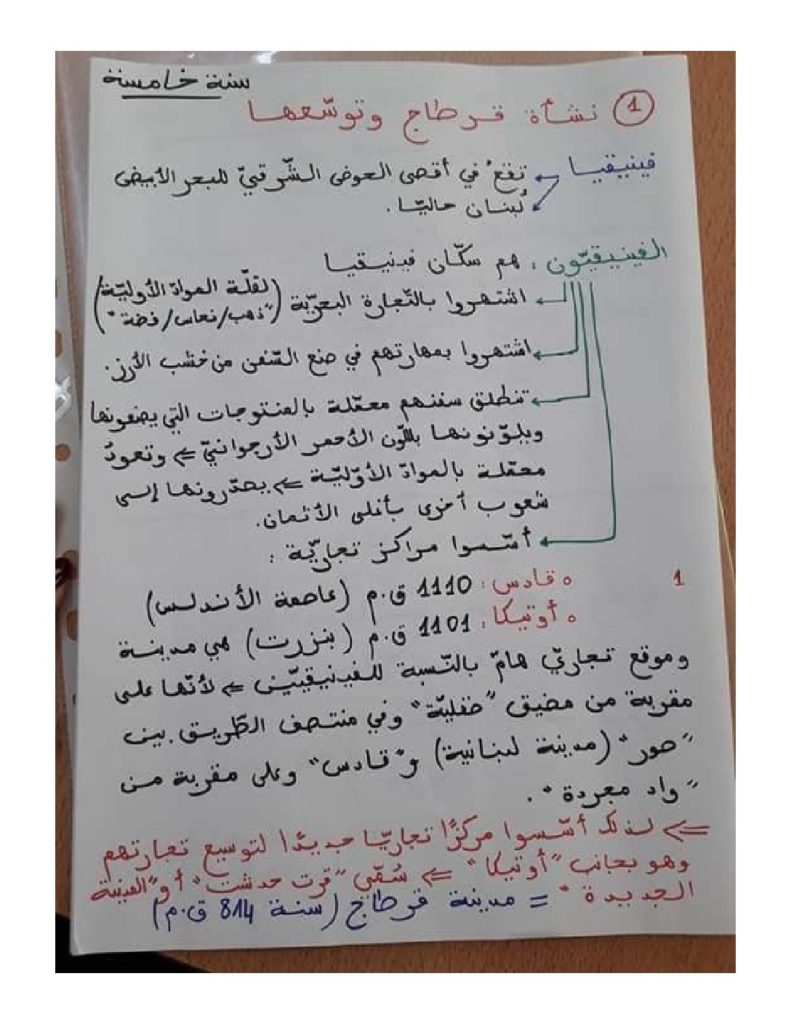 سنة خامسة
① نشأة قرطاج وتوسّعها
فينيقيا
تقعُ في أقصى الحوض الشّرقيّ للبحر الأبيض
لُبنان حاليّا.
الفينيقيّون : هم سكّان فينيقيا
اشتهروا بالتّجارة البحريّة (لقلّة الموادّ الأوليّة)
("ذهب/نحاس/فضة")
اشتهروا بمهارتهم في صنع السّفن من خشب الأرز.
تنطلق سفنهم محمّلة بالمنتوجات التي يصنعونها
ويلوّنونها باللّون الأحمر الأرجوانيّ ⇐ وتعودُ
محمّلة بالموادّ الأوّليّة ⇐ يصدّرونها إلى
شعوب أخرى بأغلى الأثمان.
أسّسوا مراكز تجاريّة :
1 ه قادس: 1110 ق.م (عاصمة الأندلس)
ه أوتيكا: 1101 ق.م (بنزرت) هي مدينة
وموقع تجاريّ هامّ بالنّسبة للفينيقيّين ⇐ لأنّها على
مقربة من مضيق "صقليّة" وفي منتصف الطّريق بين
"صور" (مدينة لبنانية) و"قادس" وعلى مقربة من
"واد مجردة".
⇐ لذلك أسّسوا مركزًا تجاريّا جديدًا لتوسيع تجارتهم
وهو بجانب "أوتيكا" ⇐ سُمّي "قرت حدشت" أو "المدينة
الجديدة" = مدينة قرطاج (سنة 814 ق.م)